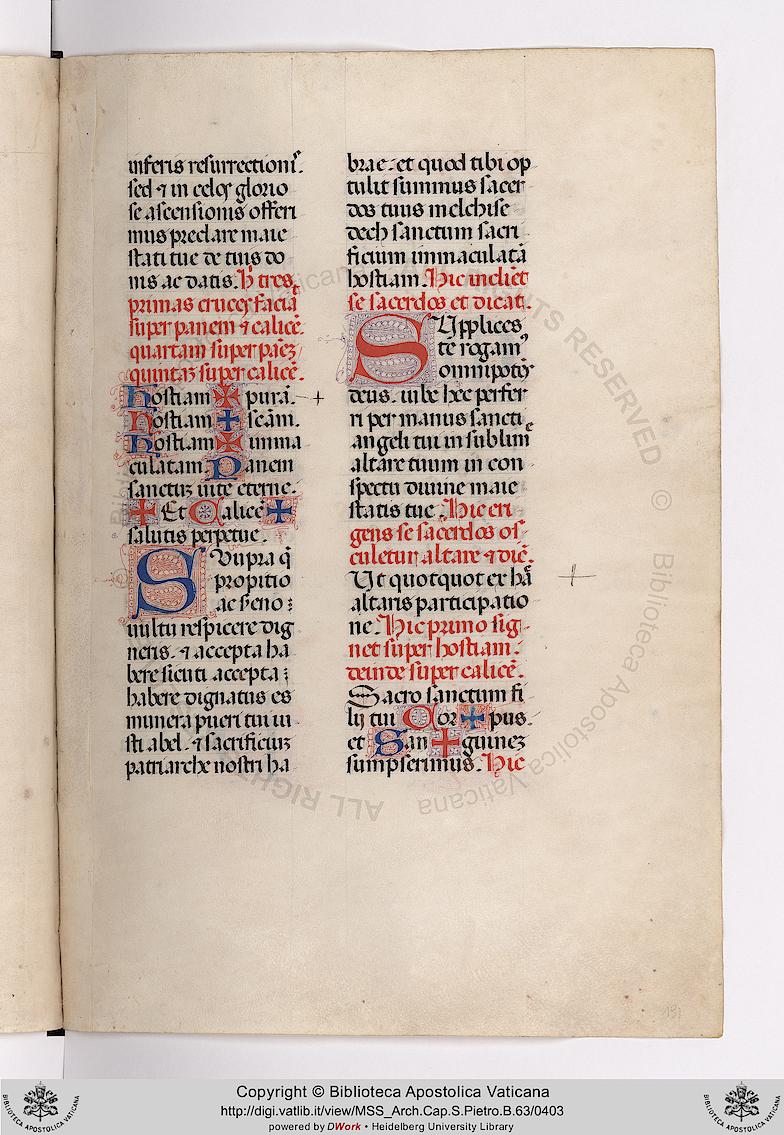 inferis resurrectioni⁹.
sed ⁊ in celoꝝ glorio
se ascensionis offeri
mus preclare maie
stati tue de tuis do
nis ac datis. Hic tres
primas cruces faciat
super panem ⁊ calicē
quartam super panē
quintaꝫ super calicē.
hostiam ✠ purā.
hostiam ✠ scām.
hostiam ✠ imma
culatam. Panem
sanctuꝫ uite eterne.
✠ Et Calicē ✠
salutis perpetue.
SUupra q̄
propitio
ac sereno
uultu respicere dig
neris. ⁊ accepta ha
bere sicuti accepta
habere dignatus es
munera pueri tui iu
sti abel. ⁊ sacrificiuꝫ
patriarche nostri ha
brae. et quod tibi op
tulit summus sacer
dos tuus melchise
dech sanctum sacri
ficium immaculatā
hostiam. Hic inclinet
se sacerdos et dicat.
SUpplices
te rogam⁹
omnipotēs
deus. iube hec perfer
ri per manus sancti
angeli tui in sublime
altare tuum in con
spectu diuine maie
statis tue. Hic eri
gens se sacerdos os
culetur altare ⁊ dicē.
Ut quotquot ex hac
altaris participatio
ne. Hic primo sig
net super hostiam.
deinde super calicē.
Sacro sanctum fi
lij tui Cor ✠ pus.
et San ✠ guineꝫ
sumpserimus. Hic
191
ALL RIGHTS RESERVED © Biblioteca Apostolica Vaticana
Copyright © Biblioteca Apostolica Vaticana
http://digi.vatlib.it/view/MSS_Arch.Cap.S.Pietro.B.63/0403
powered by DWork • Heidelberg University Library
BIBLIOTECA APOSTOLICA VATICANA
BIBLIOTECA APOSTOLICA VATICANA